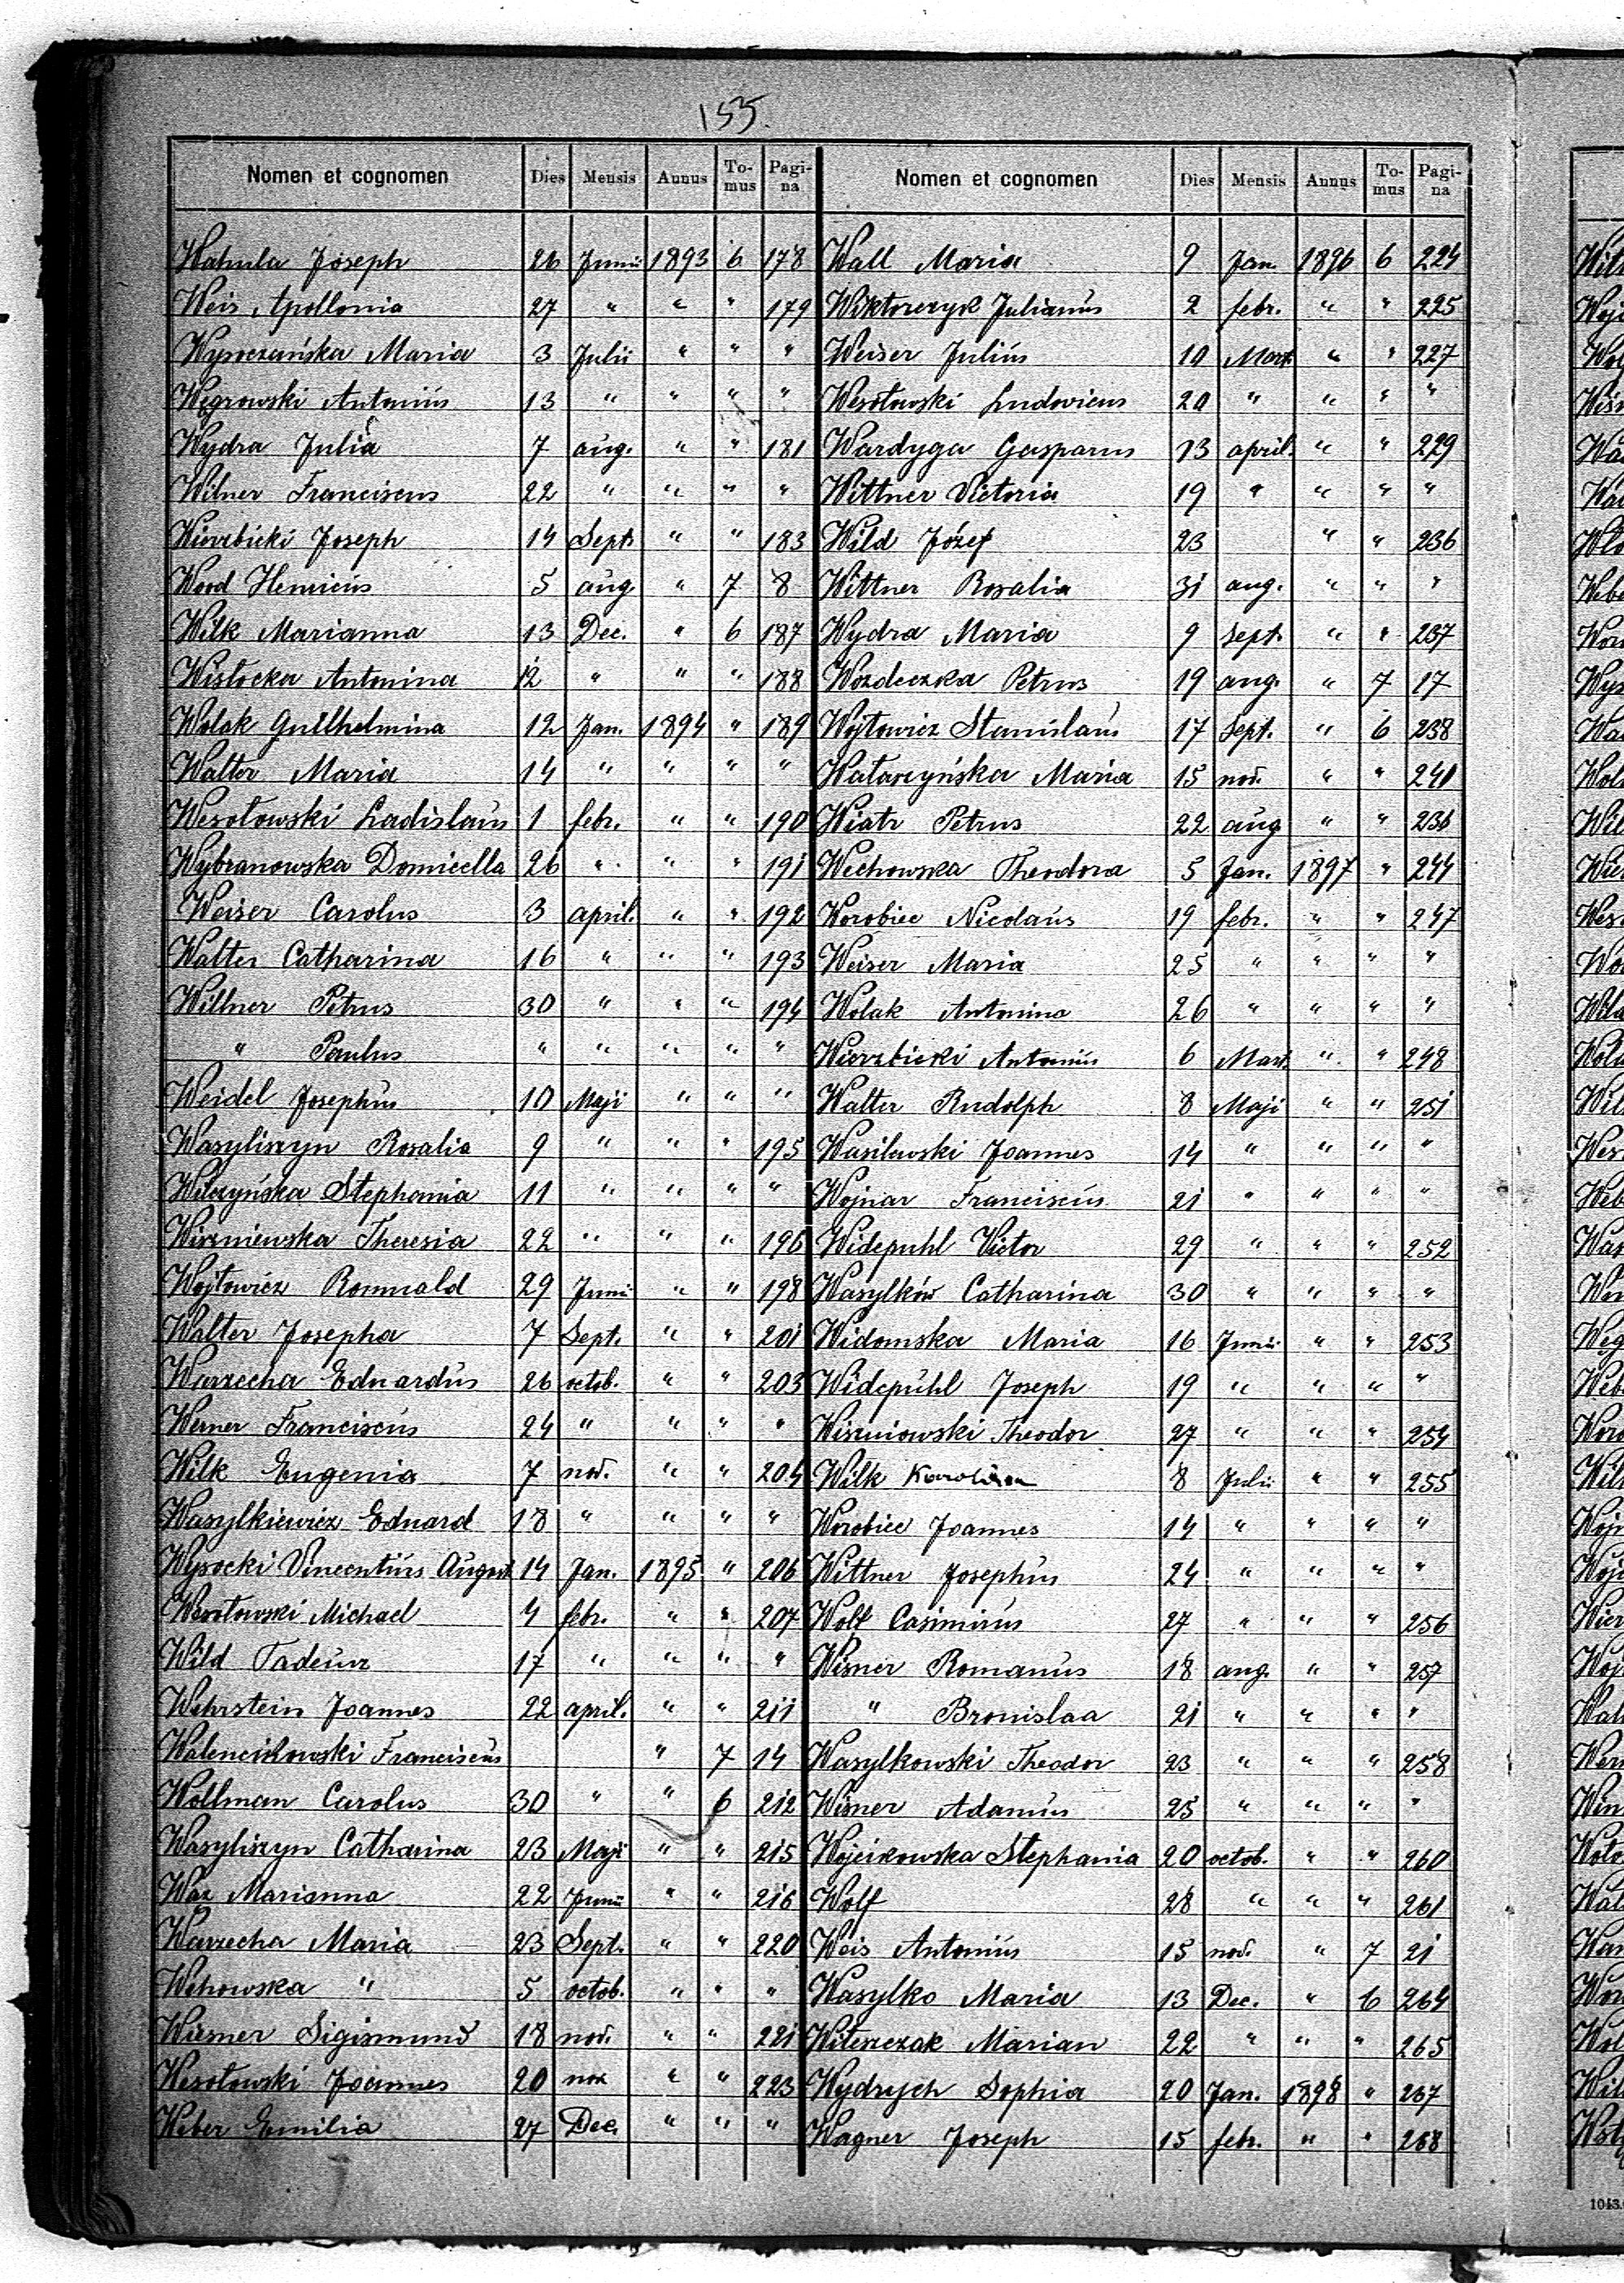 155.
Nomen et cognomen Dies Mensis Annus To-mus Pagi-na
Wahula Joseph 26 Junii 1893 6 178
Weis Apollonia 27 " " " 179
Wysoczańska Maria 3 Julii " " "
Węgrowski Antonius 13 " " " "
Wydra Julia 7 aug. " " 181
Wilner Franciscus 22 " " " "
Wierzbicki Joseph 14 Sept. " " 183
Word Henricus 5 aug " 7 8
Wilk Marianna 13 Dec. " 6 187
Wisłocka Antonina 12 " " " 188
Wolak Guilhelmina 12 Jan. 1894 " 189
Walter Maria 14 " " " "
Wesołowski Ladislaus 1 febr. " " 190
Wybranowska Domicella 26 " " " 191
Weiser Carolus 3 april. " " 192
Walter Catharina 16 " " " 193
Willner Petrus 30 " " " 194
" Paulus " " " " "
Weidel Josephus 10 Maji " " "
Wasyliszyn Rosalia 9 " " " 195
Wilczyńska Stephania 11 " " " "
Wiszniewska Theresia 22 " " " 196
Wojtowicz Romuald 29 Junii " " 198
Walter Josepha 7 Sept. " " 201
Warzecha Eduardus 26 octob. " " 203
Werner Franciscus 24 " " " "
Wilk Eugenia 7 nov. " " 204
Wasylkiewicz Eduard 18 " " " "
Wysocki Vincentius August 14 Jan. 1895 " 206
Wesołowski Michael 4 febr. " " 207
Wild Tadeusz 17 " " " "
Wehrstein Joannes 22 april. " " 211
Walencikowski Franciscus " 7 14
Wollman Carolus 30 " " 6 212
Wasyliszyn Catharina 23 Maji " " 215
Waz Marianna 22 Junii " " 216
Warzecha Maria 23 Sept. " " 220
Wehowska " 5 octob. " " "
Wiesner Sigismund 18 nov. " " 221
Wesołowski Joannes 20 nov " " 223
Weber Emilia 27 Dec. " " "
Nomen et cognomen Dies Mensis Annus To-mus Pagi-na
Wall Maria 9 Jan. 1896 6 224
Wiktorczyk Julianus 2 febr. " " 225
Weiser Julius 10 Mart. " " 227
Wesołowski Ludovicus 20 " " " "
Wardyga Gasparus 13 april. " " 229
Wittner Victoria 19 " " " "
Wild Józef 23 " " 236
Wittner Rosalia 31 aug. " " "
Wydra Maria 9 Sept. " " 237
Wozdeczka Petrus 19 aug. " 7 17
Wojtowicz Stanislaus 17 Sept. " 6 238
Watarzyńska Maria 15 nov. " " 241
Wiatr Petrus 22 aug " " 236
Wechowska Theodora 5 Jan. 1897 " 244
Worobiec Nicolaus 19 febr. " " 247
Weiser Maria 25 " " " "
Wolak Antonina 26 " " " "
Wierzbicki Antonius 6 Mart. " " 248
Walter Rudolph 8 Maji " " 251
Wasilewski Joannes 14 " " " "
Wojnar Franciscus 21 " " " "
Widepuhl Victor 29 " " " 252
Wasylków Catharina 30 " " " "
Widomska Maria 16 Junii " " 253
Widepuhl Joseph 19 " " " "
Wiszniowski Theodor 27 " " " 254
Wilk Karolina 8 Julii " " 255
Worobiec Joannes 14 " " " "
Wittner Josephus 24 " " " "
Wolf Casimirus 27 " " " 256
Wisner Romanus 18 aug. " " 257
" Bronislaa 21 " " " "
Wasylkowski Theodor 23 " " " 258
Wisner Adamus 25 " " " "
Wojcikowska Stephania 20 octob. " " 260
Wolf 28 " " " 261
Weis Antonius 15 nov. " 7 21
Wasylko Maria 13 Dec. " 6 264
Witeszczak Marian 22 " " " 265
Wydrych Sophia 20 Jan. 1898 " 267
Wagner Joseph 15 febr. " " 268